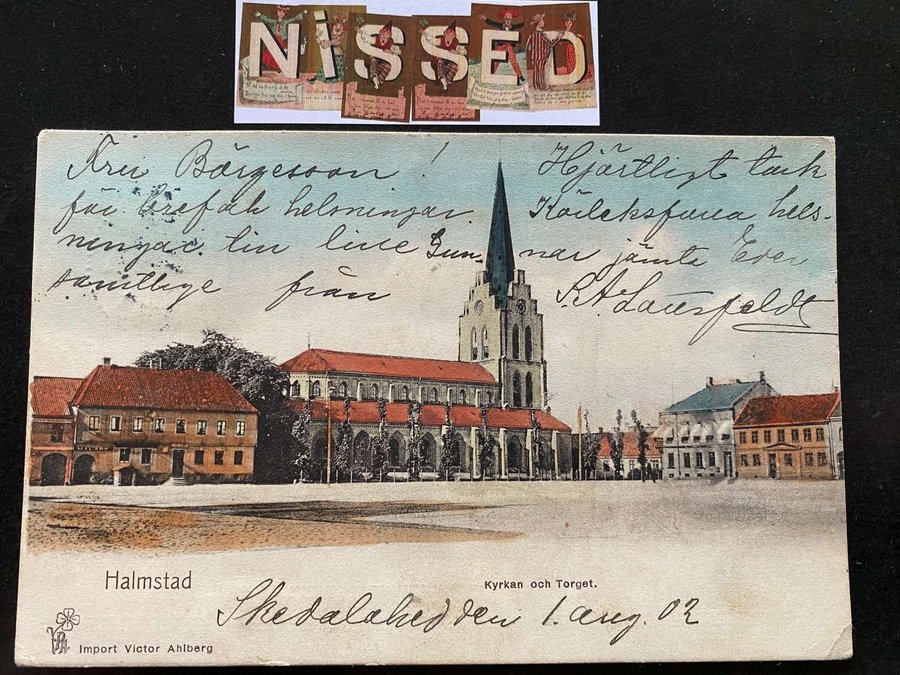 NISSED
Fru Börgesson! Hjärtligt tack
för bref och helsningar. Kärleksfulla hels-
ningar till lille Gunnar jämte Eder
samtlige från S. A.
Halmstad
Kyrkan och Torget.
Skedalahed den 1. aug. 02
Import Victor Ahlberg